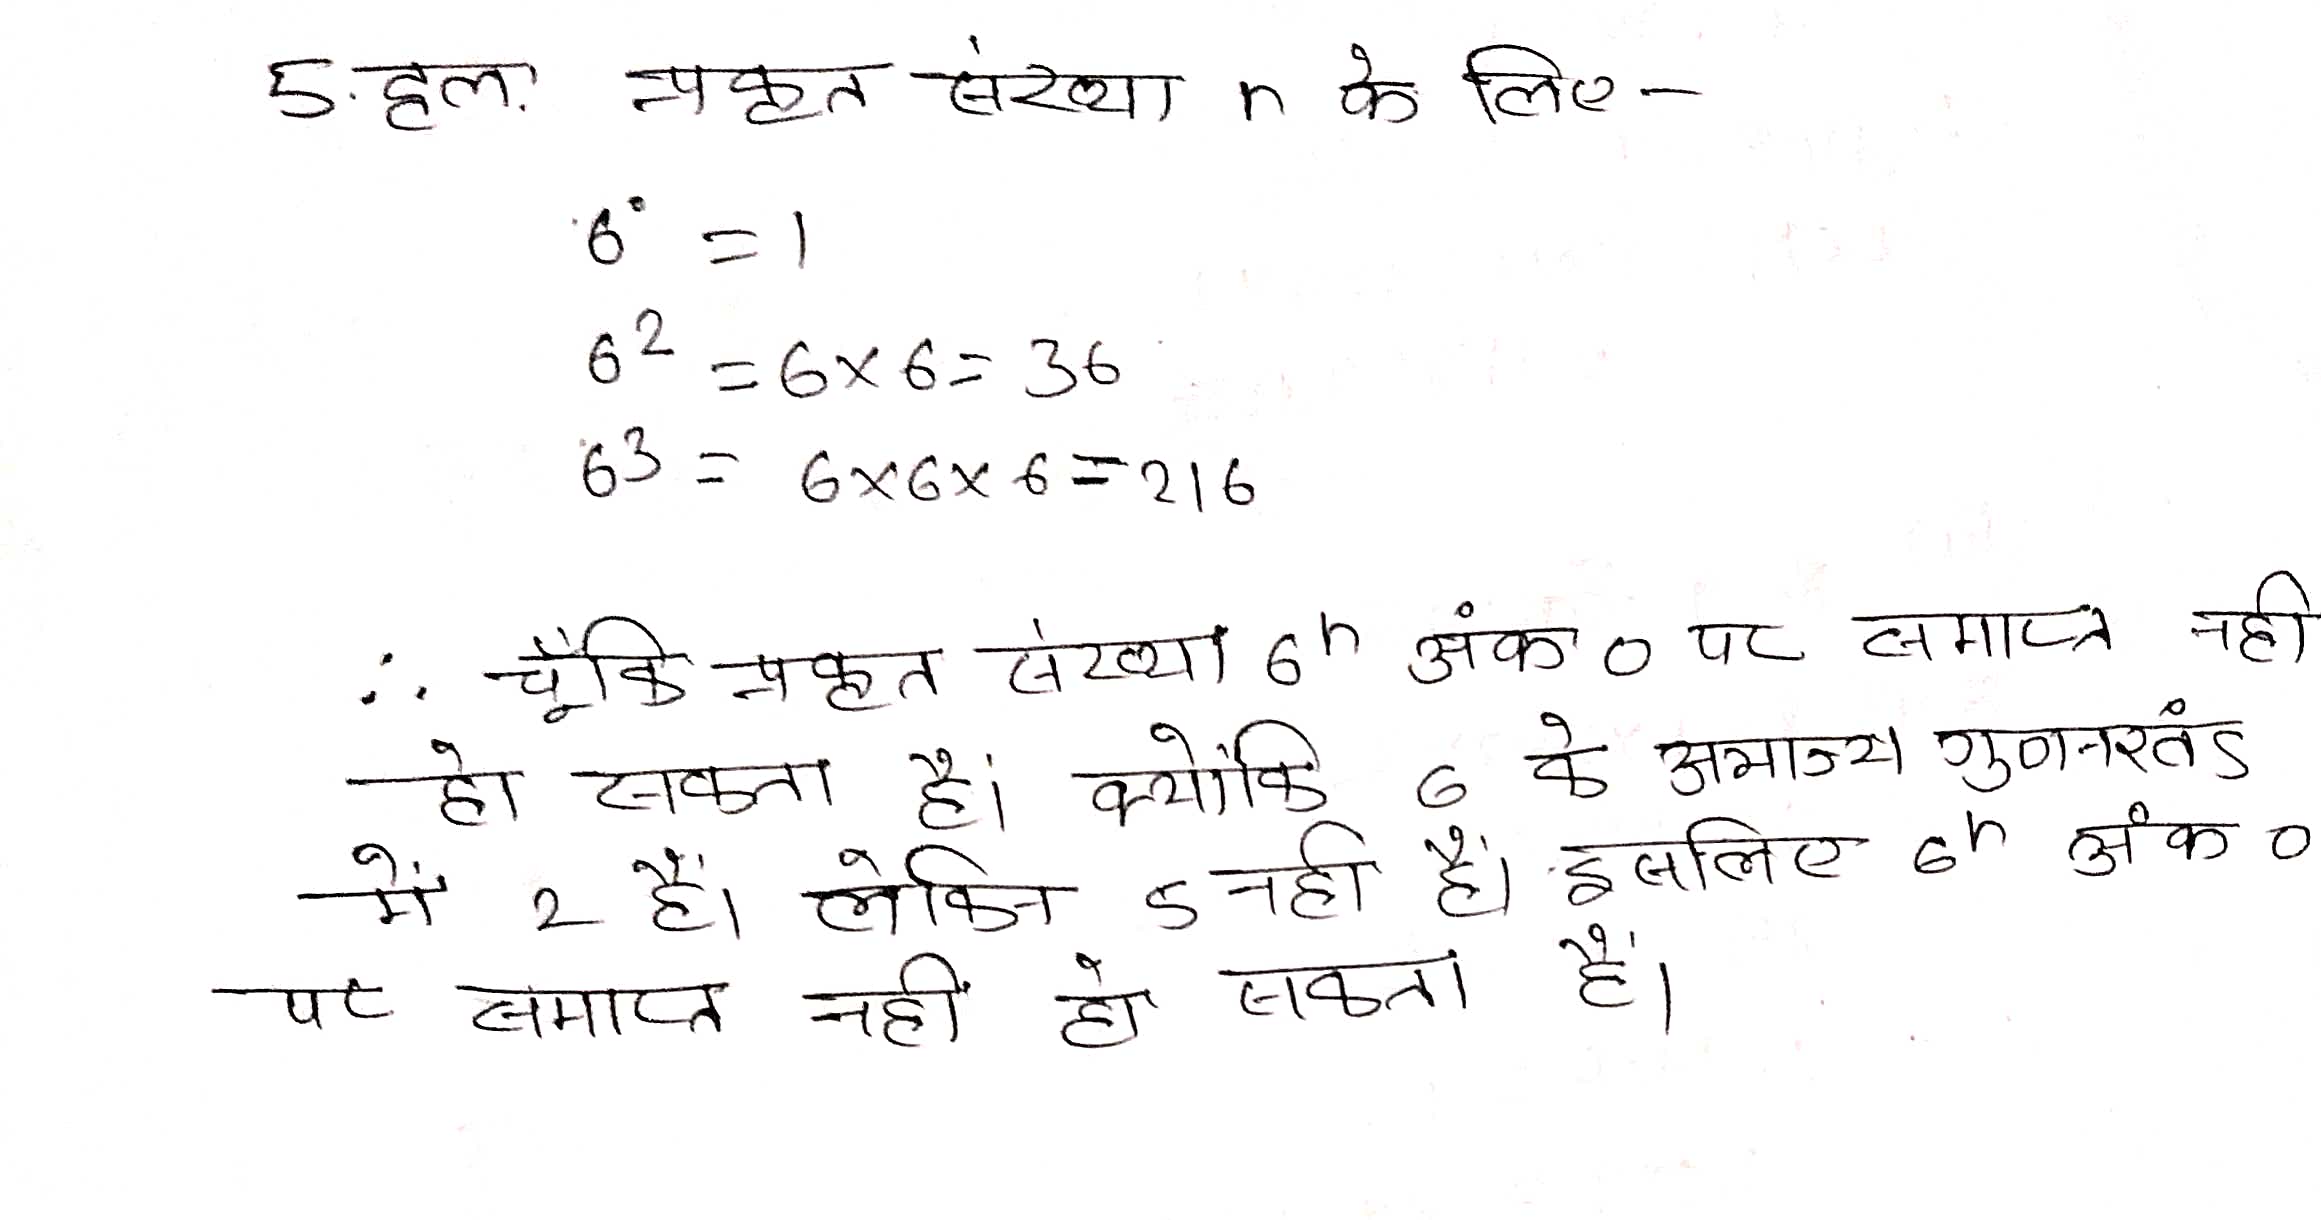 5. हल. प्रकृत संख्या n के लिए -
6° = 1
6² = 6×6 = 36
6³ = 6×6×6 = 216
∴ चूँकि प्रकृत संख्या 6ⁿ अंक 0 पर समाप्त नही
हो सकता हैं। क्योंकि 6 के अभाज्य गुणनखंड
में 2 हैं। लेकिन 5 नही हैं। इसलिए 6ⁿ अंक 0
पर समाप्त नही हो सकता हैं।